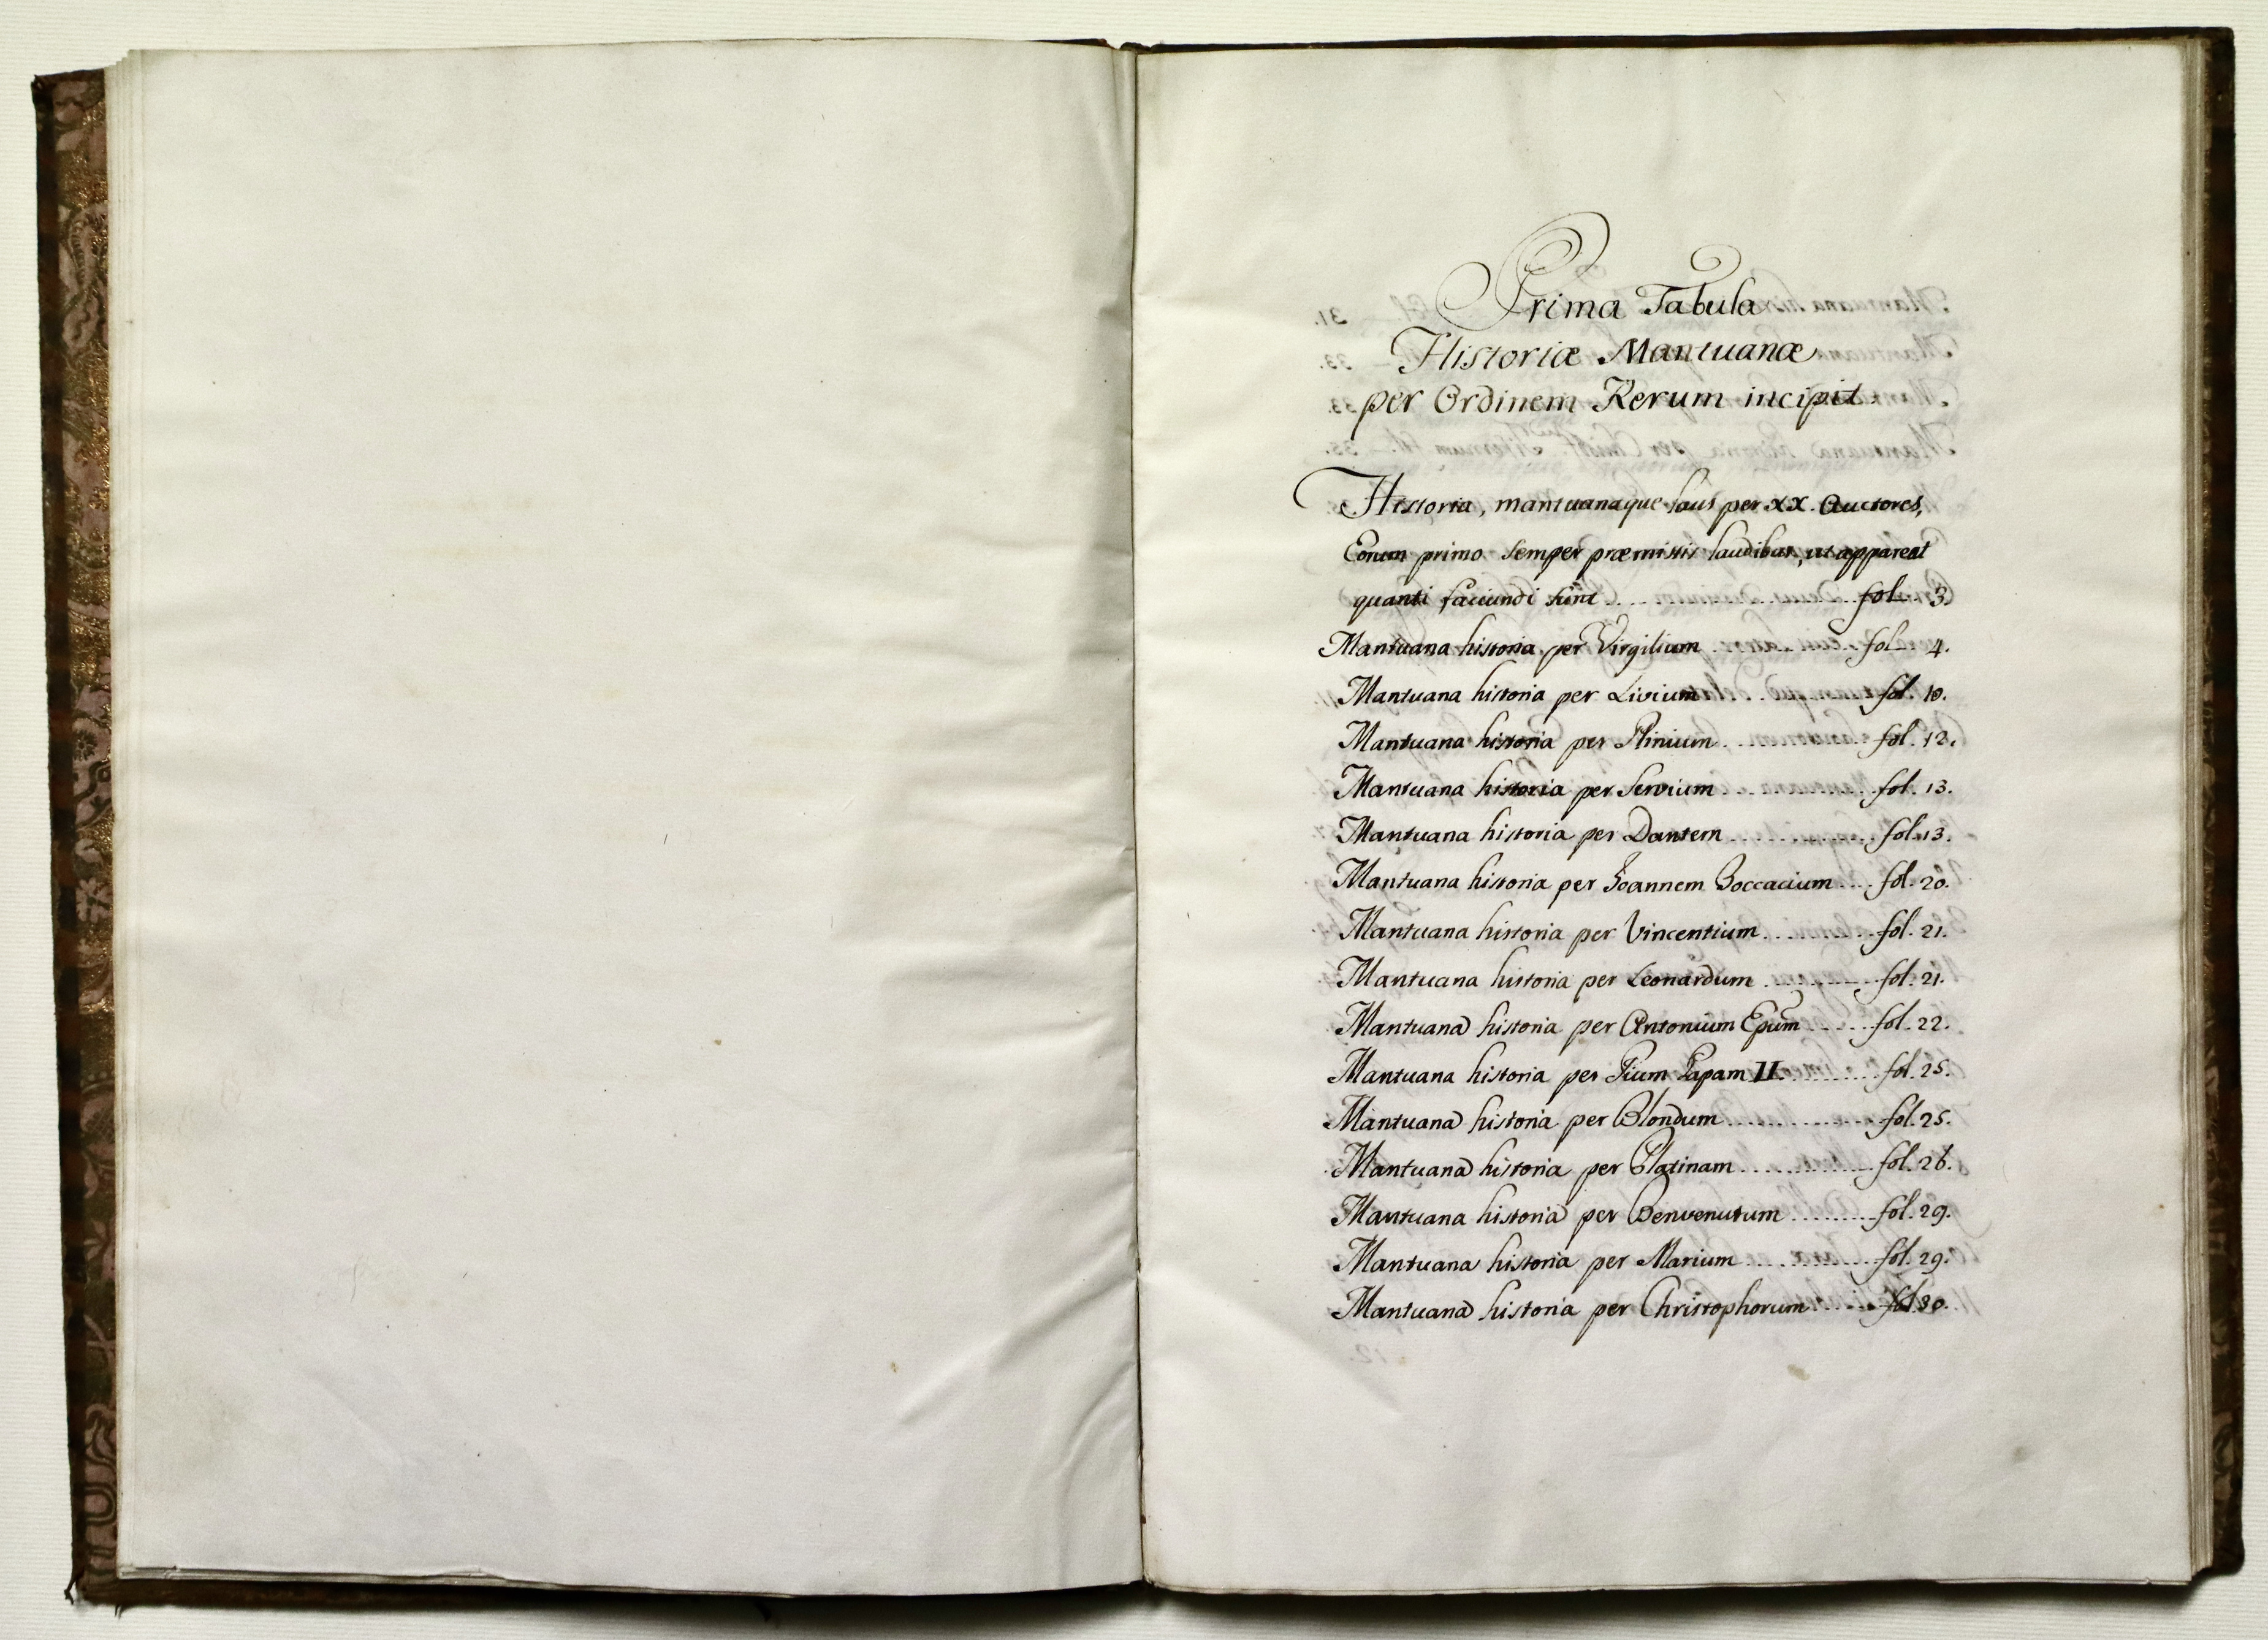 Prima Tabula
Historiæ Mantuanæ
per Ordinem Rerum incipit.
Historia, mantuanaque laus per XX. Auctores,
Eorum primo semper præmissis laudibus, ut appareat
quanti faciundi sint .... fol. 3.
Mantuana historia per Virgilium .... fol. 4.
Mantuana historia per Livium .... fol. 10.
Mantuana historia per Plinium .... fol. 12.
Mantuana historia per Servium .... fol. 13.
Mantuana historia per Dantem .... fol. 13.
Mantuana historia per Joannem Boccacium .... fol. 20.
Mantuana historia per Vincentium .... fol. 21.
Mantuana historia per Leonardum .... fol. 21.
Mantuana historia per Antonium Epum .... fol. 22.
Mantuana historia per Pium Papam II. .... fol. 25.
Mantuana historia per Blondum .... fol. 25.
Mantuana historia per Platinam .... fol. 26.
Mantuana historia per Benvenutum .... fol. 29.
Mantuana historia per Marium .... fol. 29.
Mantuana historia per Christophorum .... fol. 30.